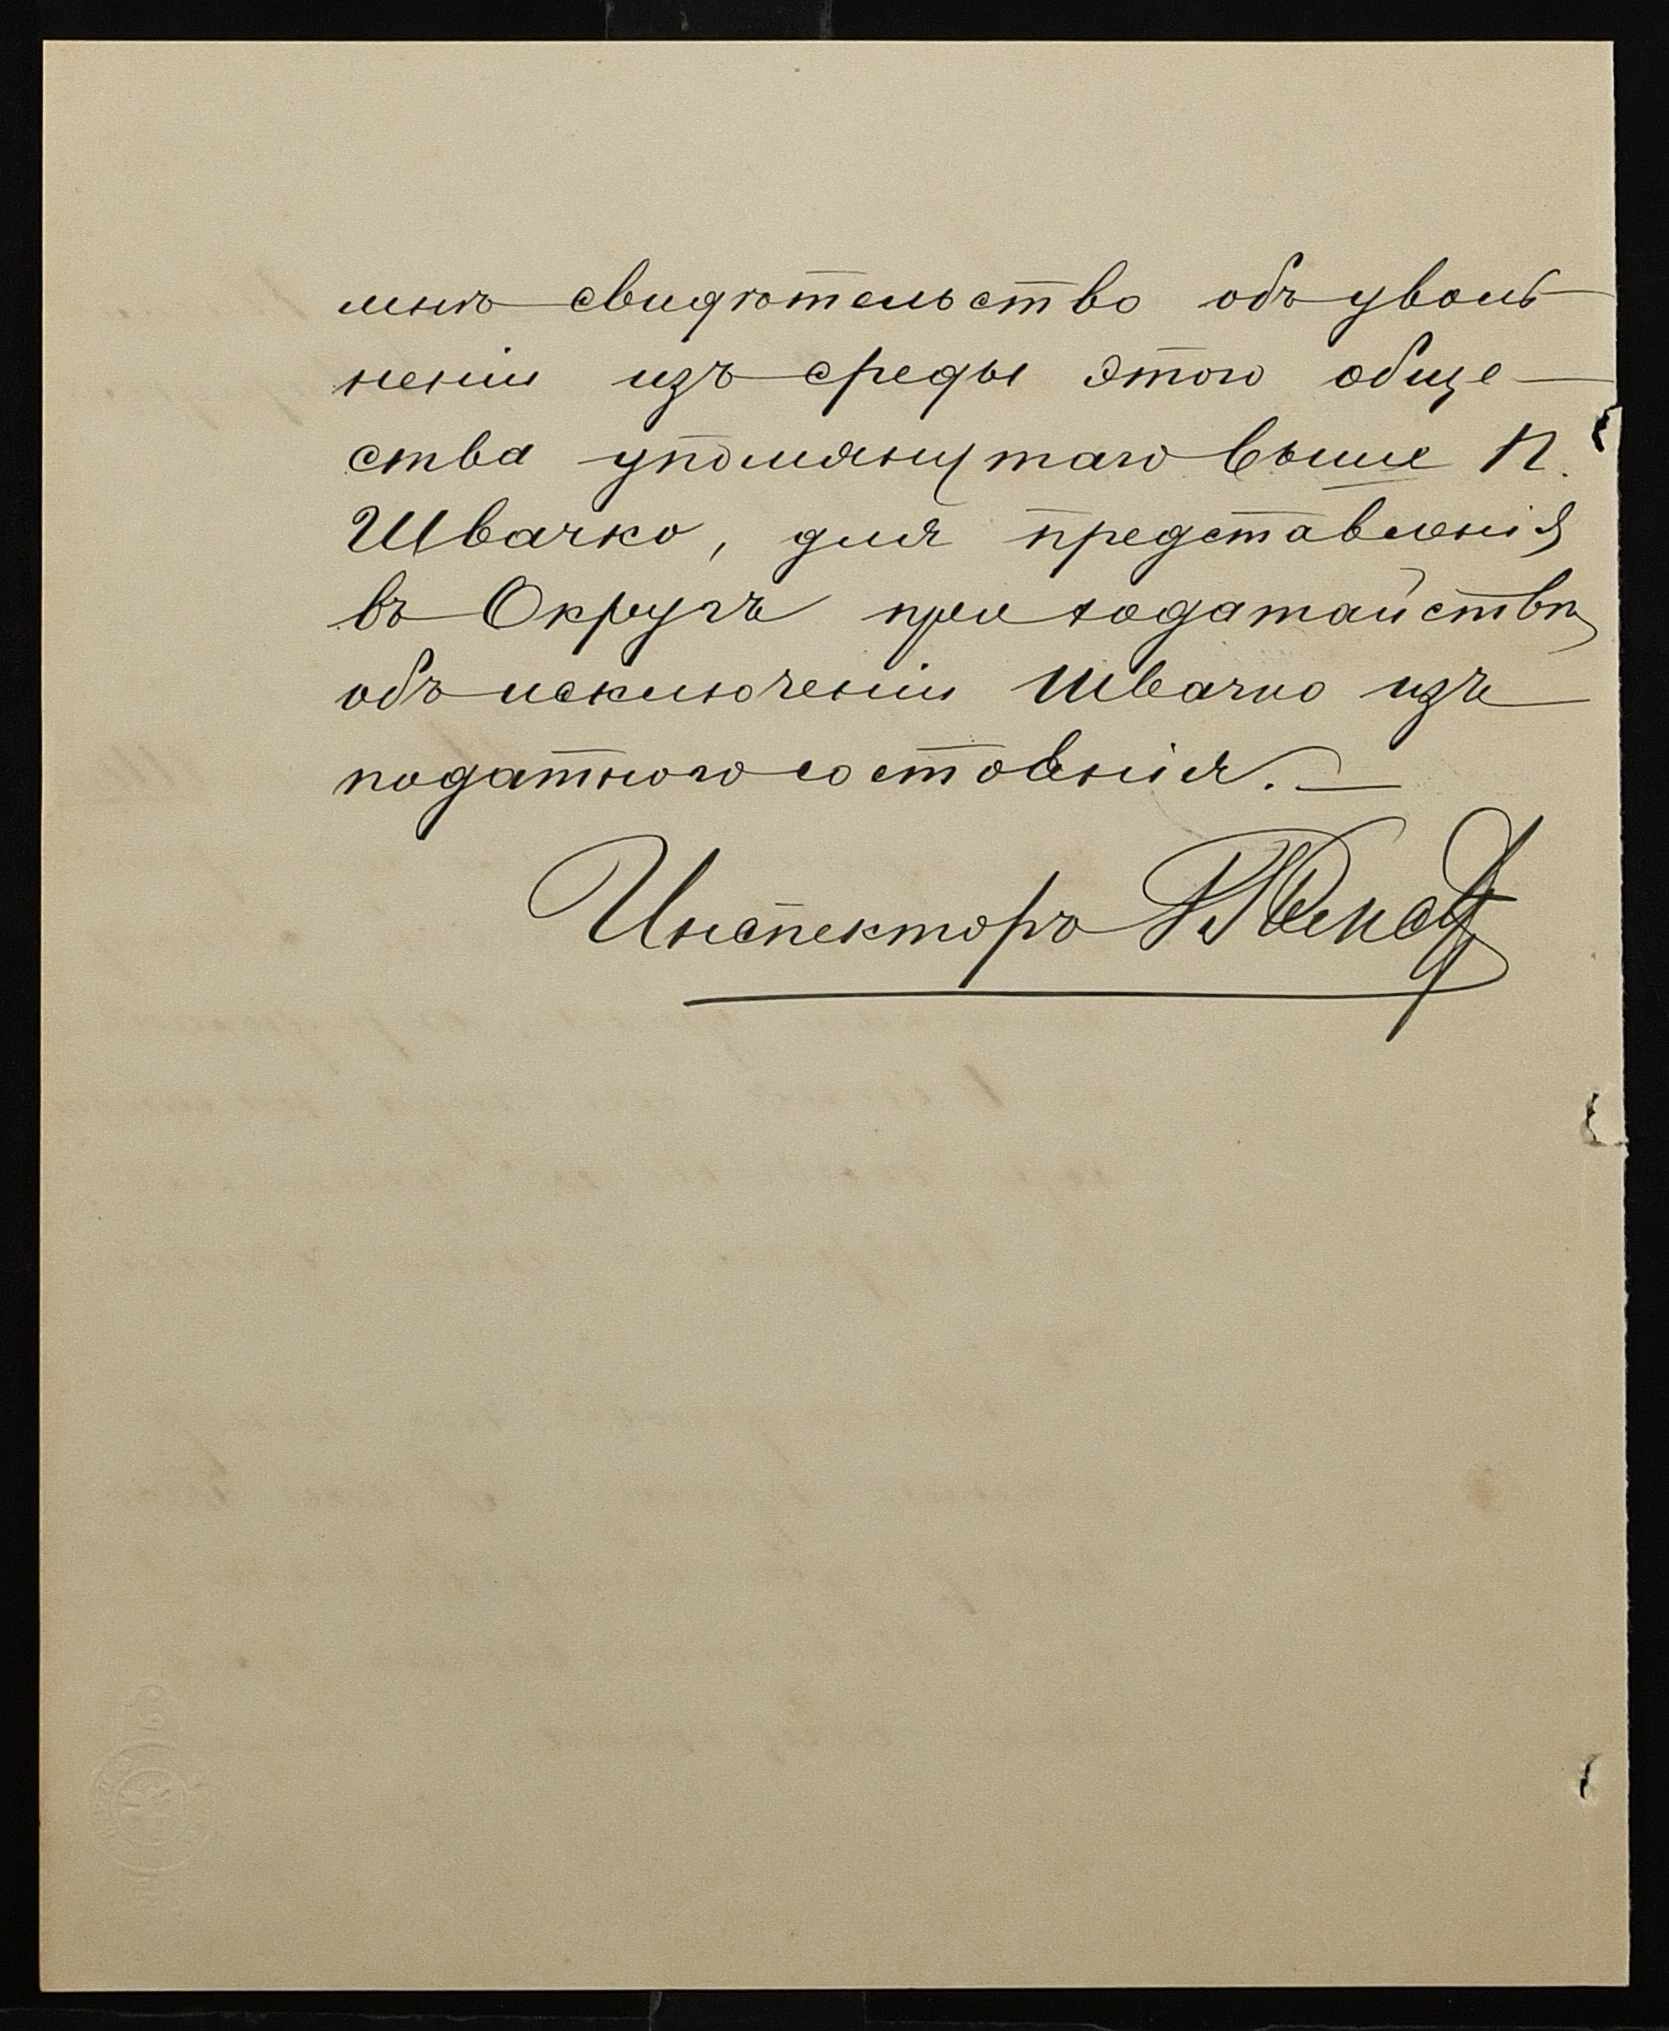 мнѣ свидѣтельство объ уволь
ненiи изъ среды этого обще—
ства упомянутаго выше П.
Швачко, для представленiя
въ Округъ при ходатайствѣ
объ исключенiи Швачко изъ
податного состоянiя. —
Инспекторъ